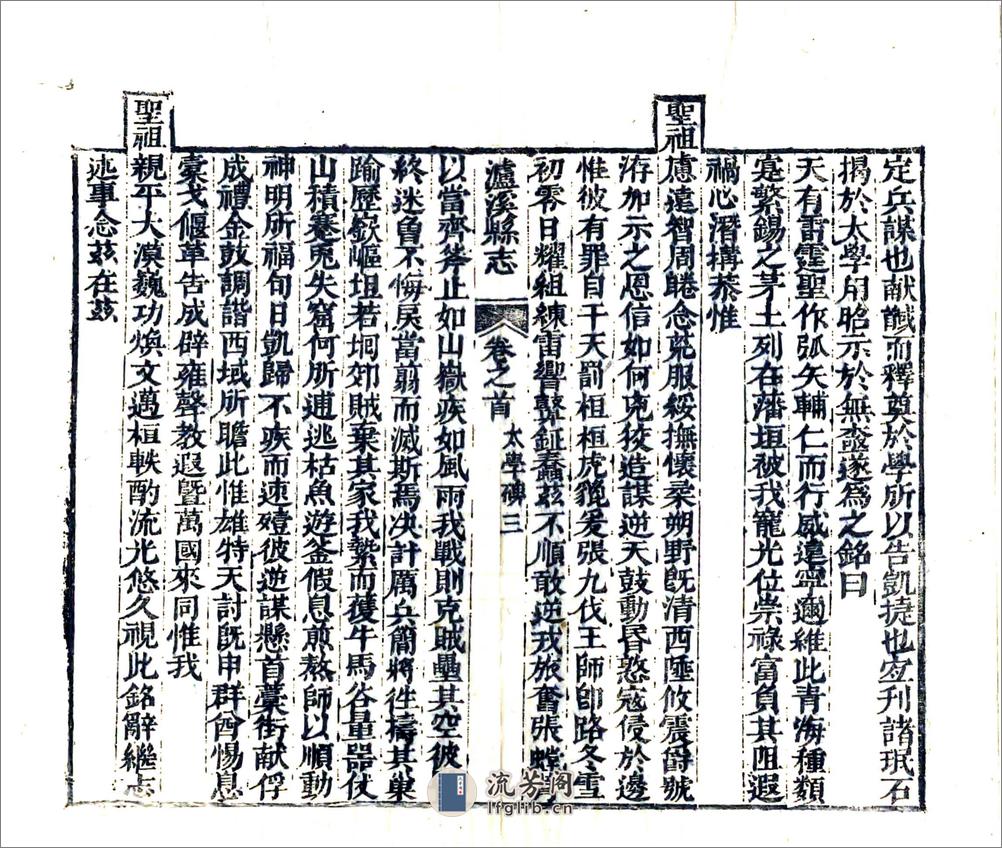 定兵謀也献馘而釋奠於學所以告凱捷也宜刊諸珉石
揭於太學用昭示於無斁遂為之銘曰
天有雷霆聖作弧矢輔仁而行威遠寧邇維此青海種類
寔繁錫之茅土列在藩垣被我寵光位崇祿富負其阻遐
禍心潛搆恭惟
聖祖慮遠智周睠念荒服綏撫懷柔朔野旣清西陲攸震爵號
洊加示之恩信如何兇徒造謀逆天鼓動昏憝寇侵於邊
惟彼有罪自干天罰桓桓虎貔爰張九伐王師即路冬雪
初零日耀組練雷響鼙鉦蠢茲不順敢逆戎旅奮張螳
瀘溪縣志 卷之首 太學碑三
以當齊斧止如山嶽疾如風雨我戰則克賊壘其空彼
終迷魯不悔戾當翦而滅斯焉决計厲兵簡將徃擣其巢
踰歷嶔嶇坦若坰郊賊棄其家我縶而獲牛馬谷量器仗
山積蹇兎失窟何所逋逃枯魚遊釜假息煎熬師以順動
神明所福旬日凱歸不疾而速嬉彼逆謀懸首藁街献俘
成禮金鼓調諧西域所瞻此惟雄特天討旣申群酋惕息
橐戈偃革告成辟雍聲教遐曁萬國來同惟我
聖祖親平大漠巍功煥文邁桓軼酌流光悠久視此銘辭繼志
述事念茲在茲
流芳阁
lfglib.cn